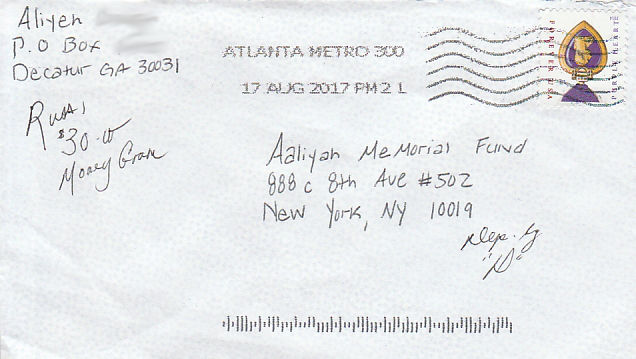 Aliyeh
P.O Box
Decatur GA 30031
ATLANTA METRO 300
17 AUG 2017 PM 2 L
FOREVER USA
PURPLE HEART
$30.00
Money Gram
Aaliyah Memorial Fund
888 c 8th Ave #502
New York, NY 10019